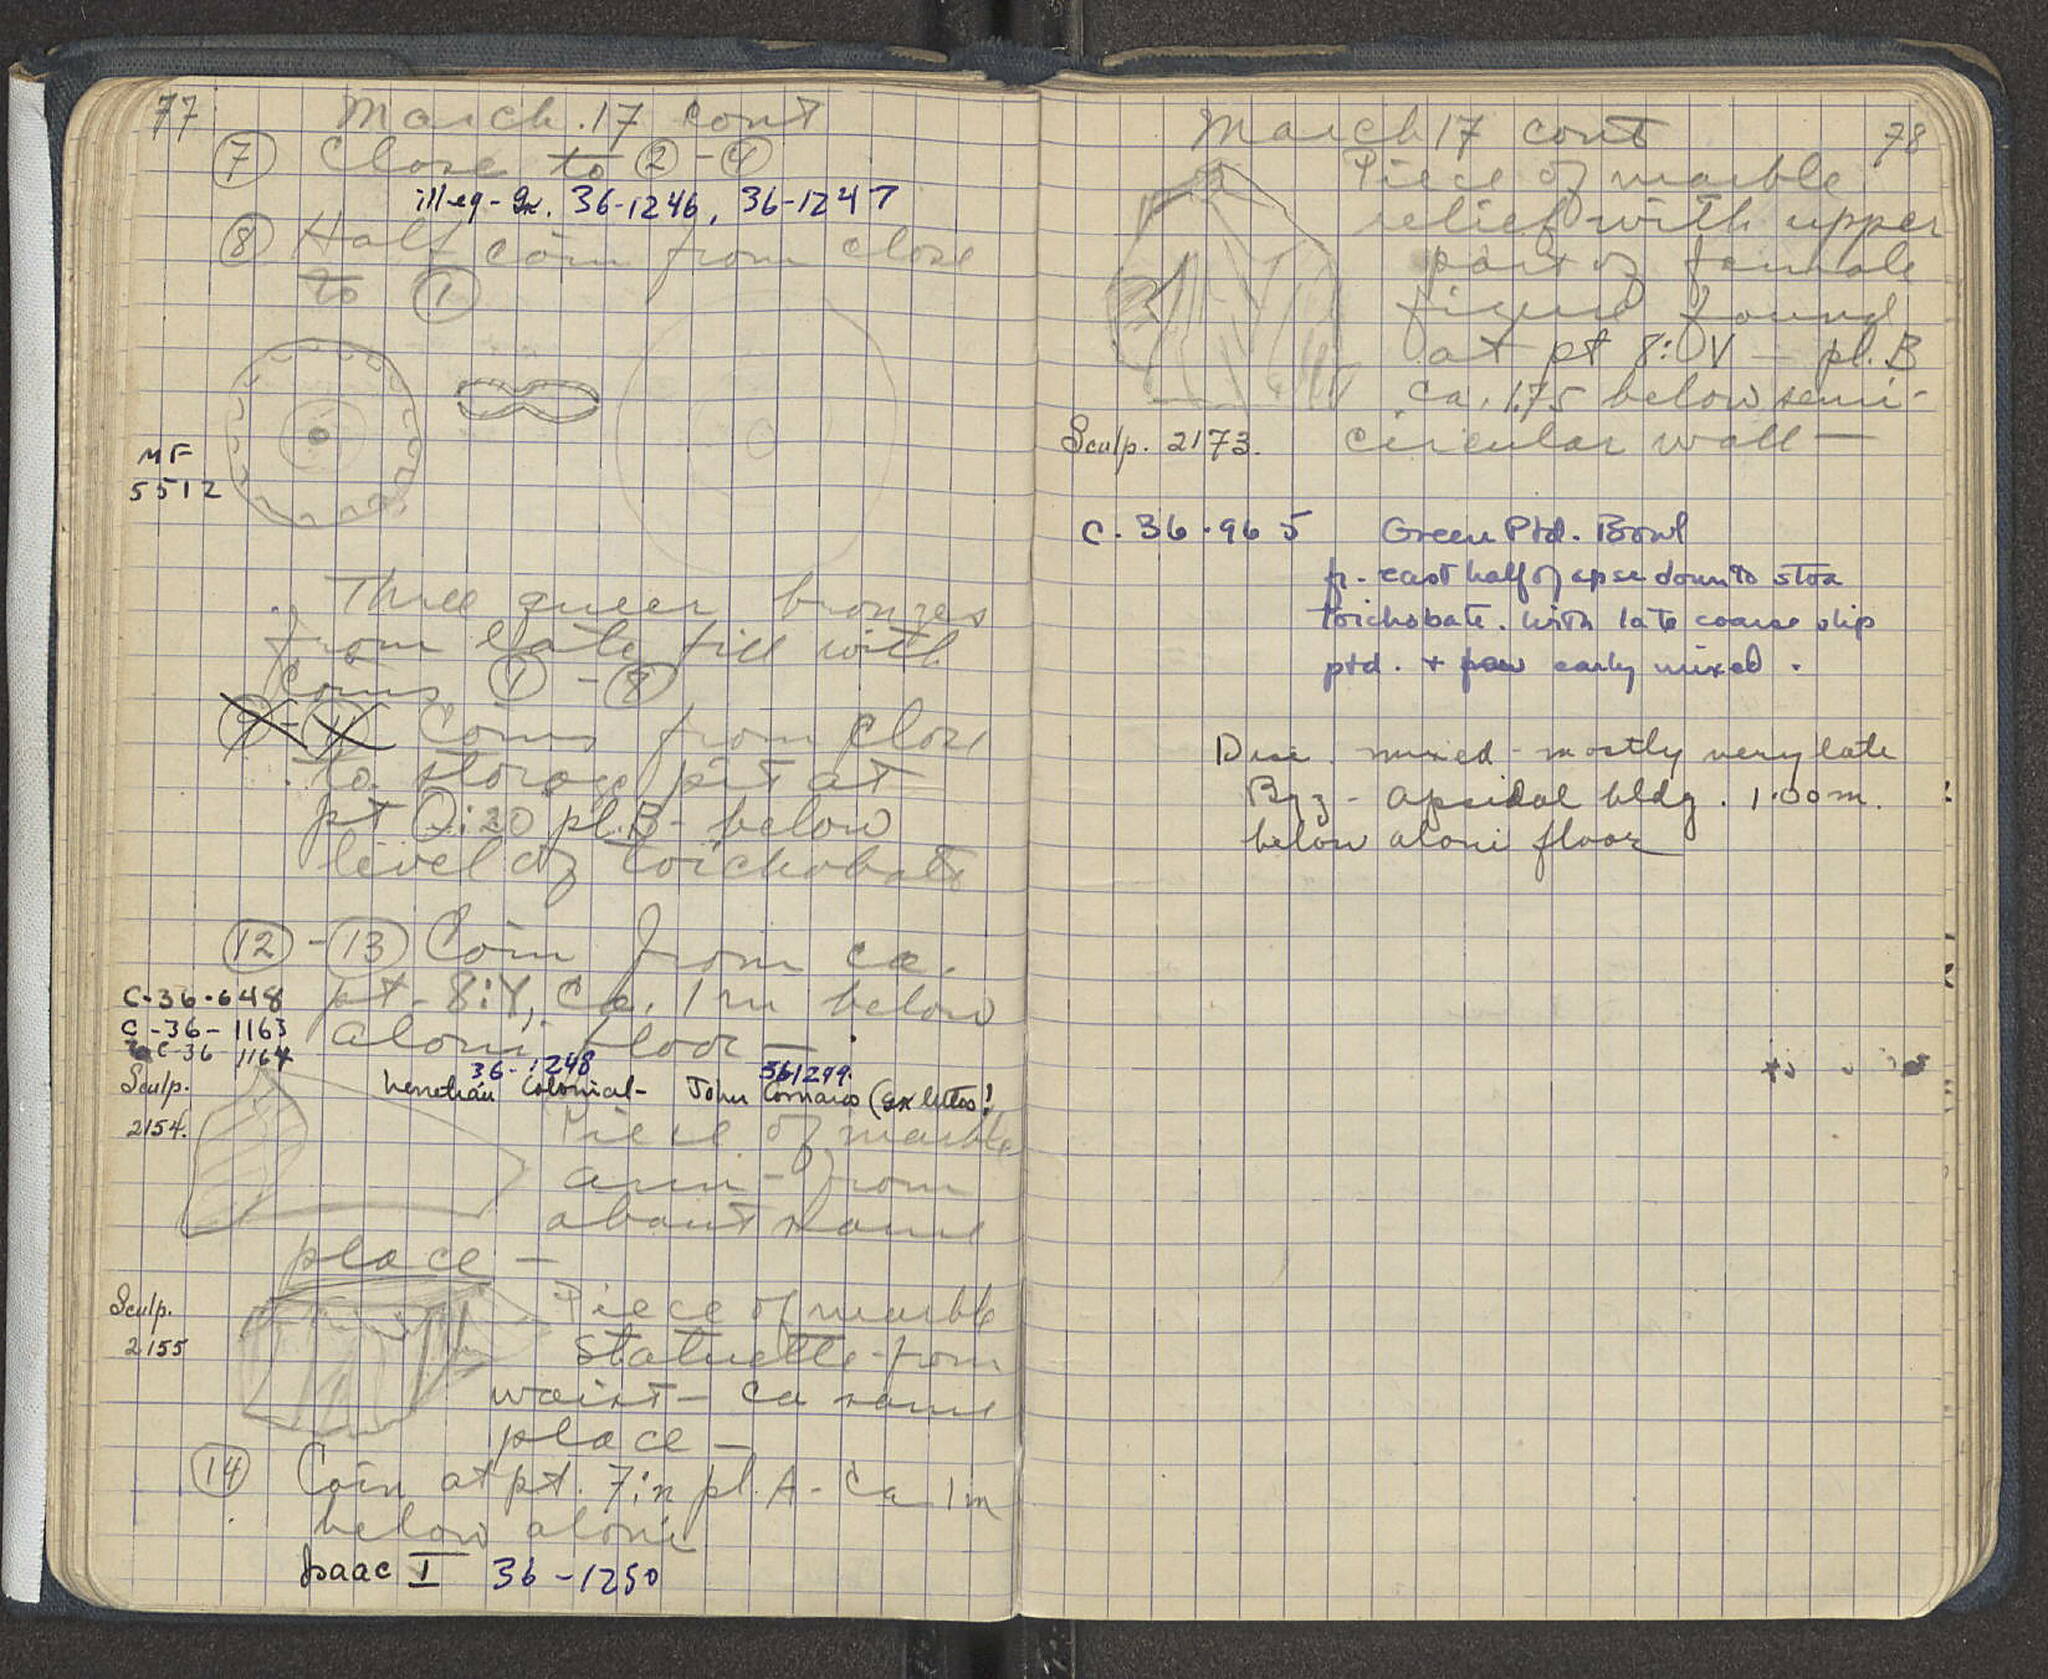 77 March 17 cont
⑦ Close to ② - ④
illeg - 36-1246, 36-1247
⑧ Half coin from close
to ①
MF
5512
Three queer bronzes
from late fill with
coins ① - ⑧
⑨ - ⑪ Coins from close
to storage pit at
pt Q:20 pl. B - below
level of toichobate
⑫ - ⑬ Coin from ca.
pt - 8:Y, ca. 1 m below
aloni floor —
C-36-648
C-36-1163
C-36 1164
36-1248 361249.
Venetian Colonial - John Cornaro (ex letters!
Sculp.
2154.
Piece of marble
arm - from
about same
place —
Sculp.
2155
Piece of marble
statuette from
waist - ca same
place —
⑭ Coin at pt. 7:n pl. A - ca 1 m
below aloni
Isaac II 36-1250
March 17 cont 78
Piece of marble
relief with upper
part of female
figure found
at pt 8:V — pl. B
ca. 1.75 below semi-
circular wall —
Sculp. 2173.
C-36-965 Green Ptd. Bowl
fr. east half of apse down to stoa
toichobate. with late coarse slip
ptd. + early mixed.
mixed - mostly very late
Byz - apsidal bldg. 1.00 m.
below aloni floor